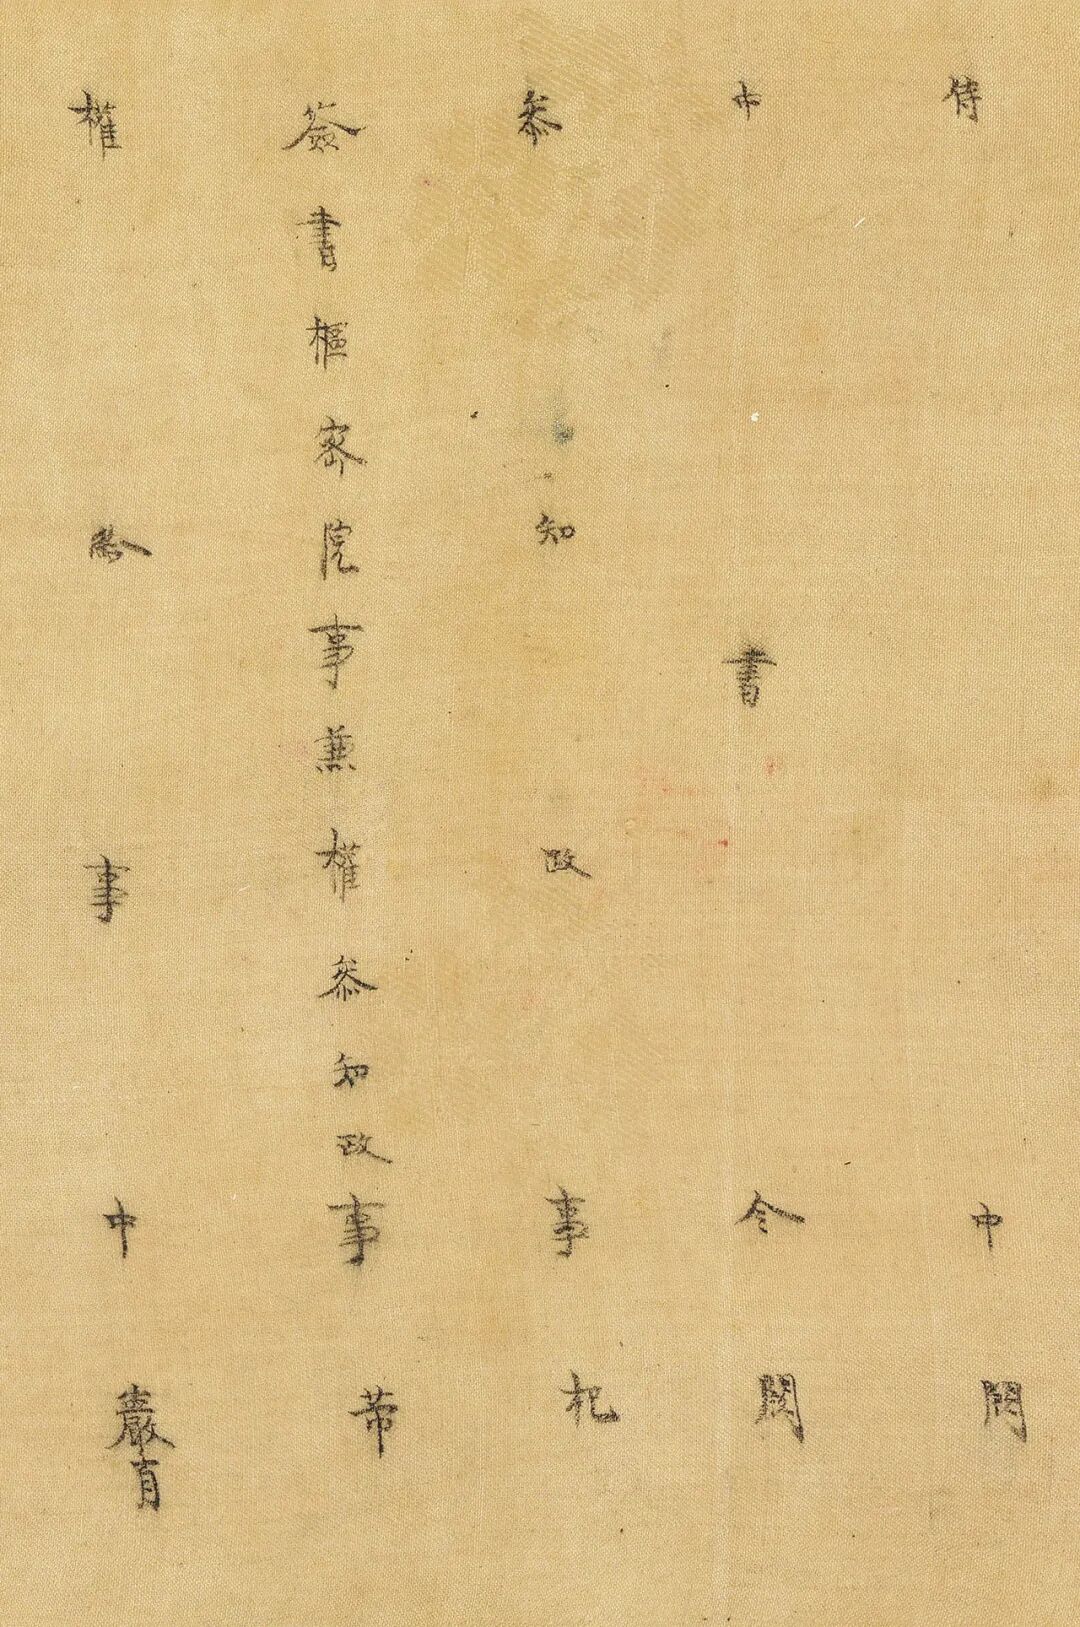 侍中闕
中書令闕
參知政事杞
僉書樞密院事兼權參知政事芾
權給事中巖肖